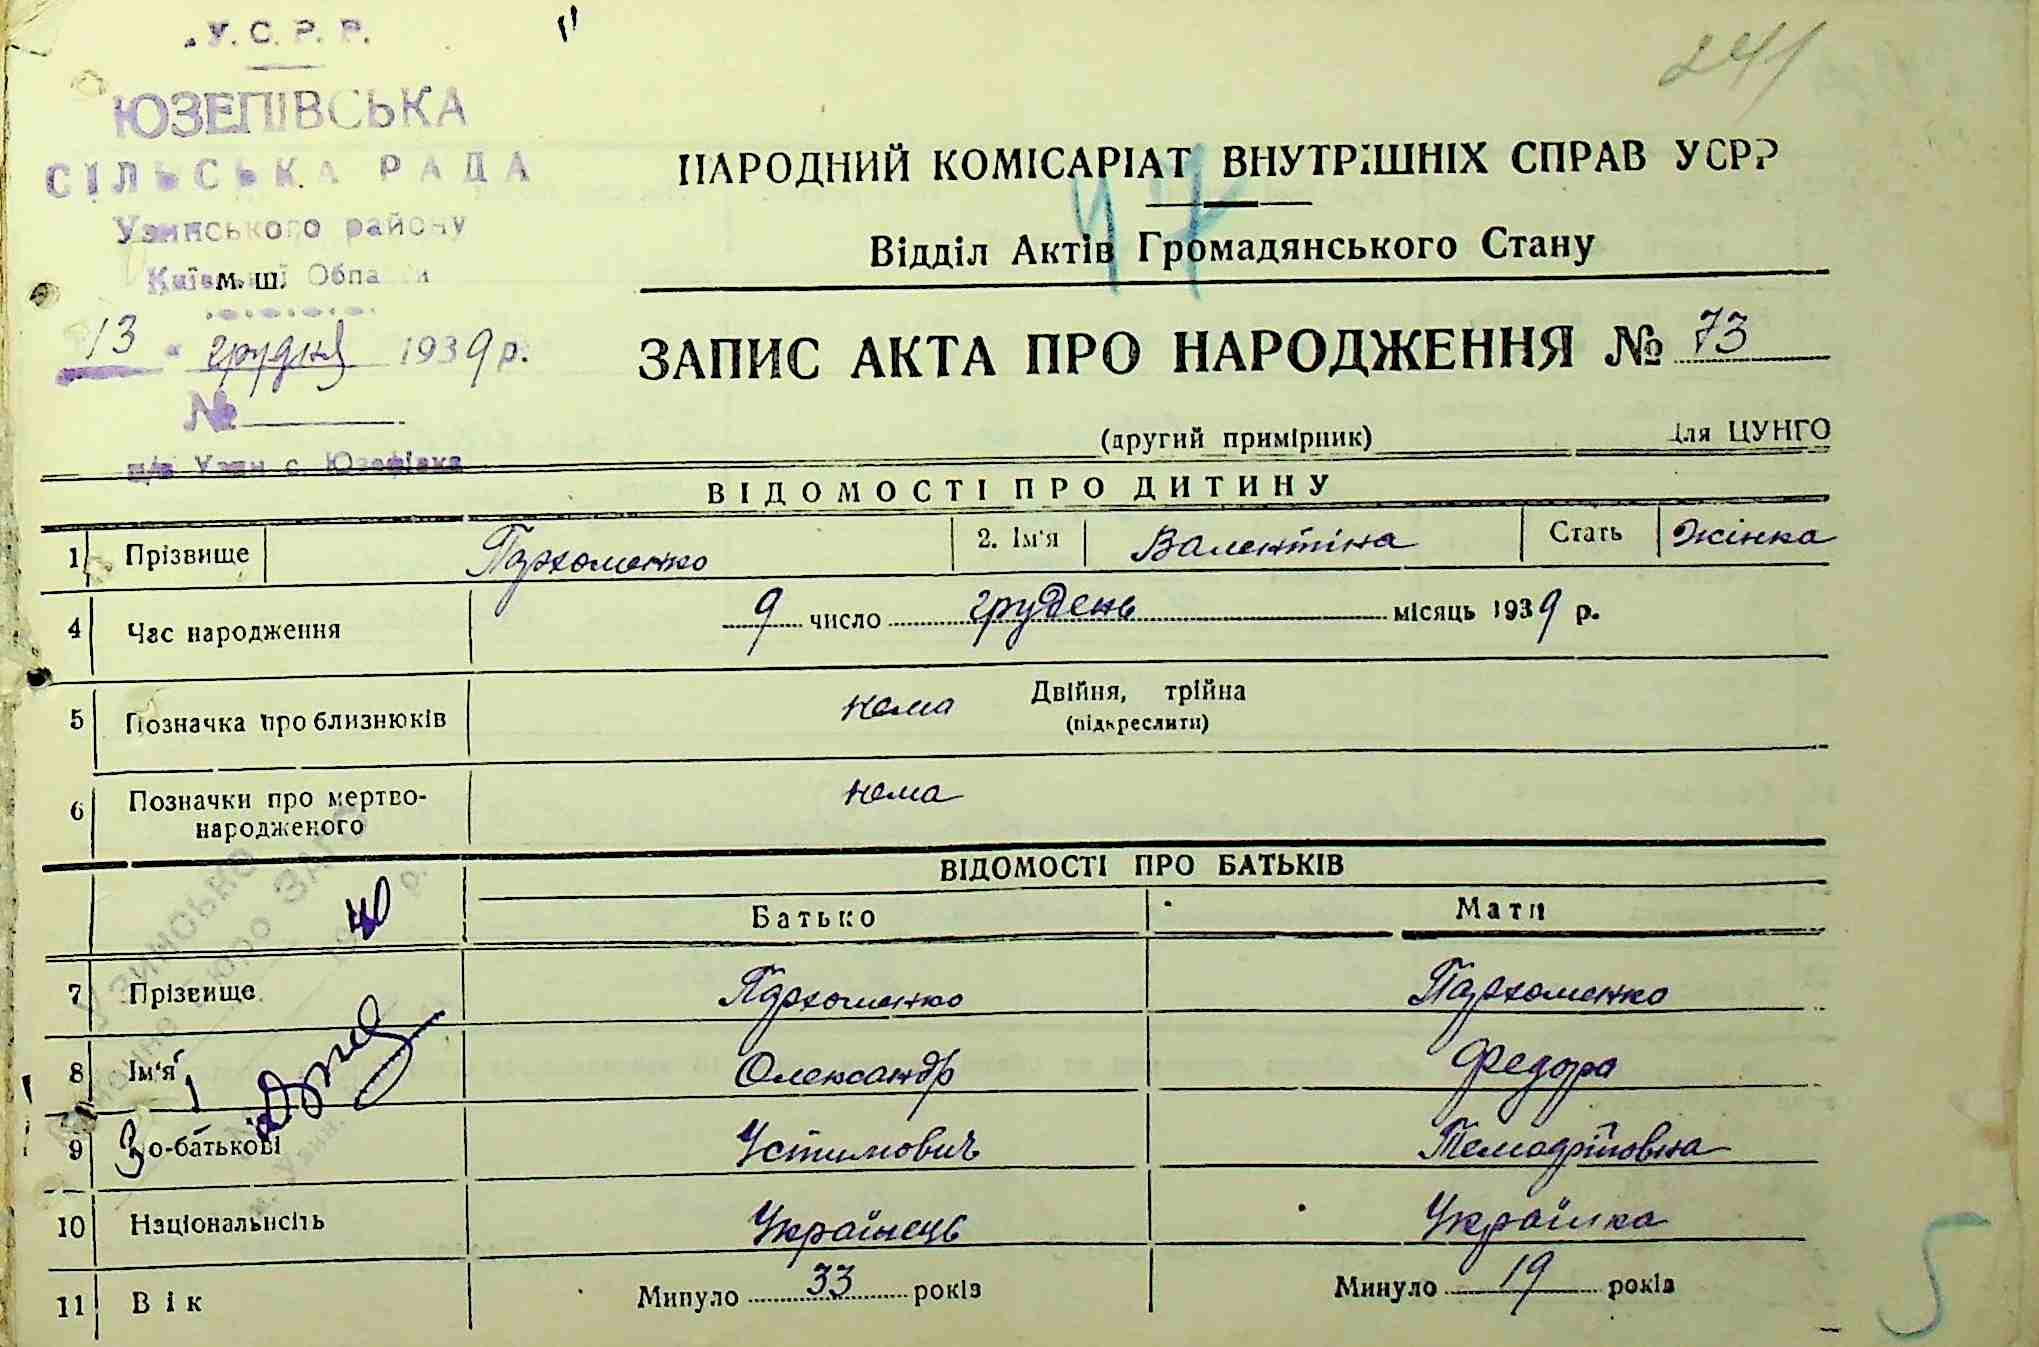 У.С.Р.Р.
ЮЗЕПІВСЬКА
СІЛЬСЬКА РАДА
Узинського району
Київської Обла
м. ш.
13 " грудня 1939 р.
№
п/в Узин с. Юзефівка
241
НАРОДНИЙ КОМІСАРІАТ ВНУТРІШНІХ СПРАВ УСРР
47
Відділ Актів Громадянського Стану
ЗАПИС АКТА ПРО НАРОДЖЕННЯ № 73
(другий примірник) Для ЦУНГО
ВІДОМОСТІ ПРО ДИТИНУ
1 Прізвище Пархоменко 2. Ім'я Валентіна Стать жінка
4 Час народження 9 число грудень місяць 1939 р.
5 Позначка про близнюків нема Двійня, трійна
(підкреслити)
6 Позначки про мертво-
народженого нема
ВІДОМОСТІ ПРО БАТЬКІВ
Батько Мати
7 Прізвище Пархоменко Пархоменко
8 Ім'я Олександр Федора
9 Зо-батькові Устимович
10 Національність Українець Українка
11 Вік Минуло 33 років Минуло 19 років
40
5